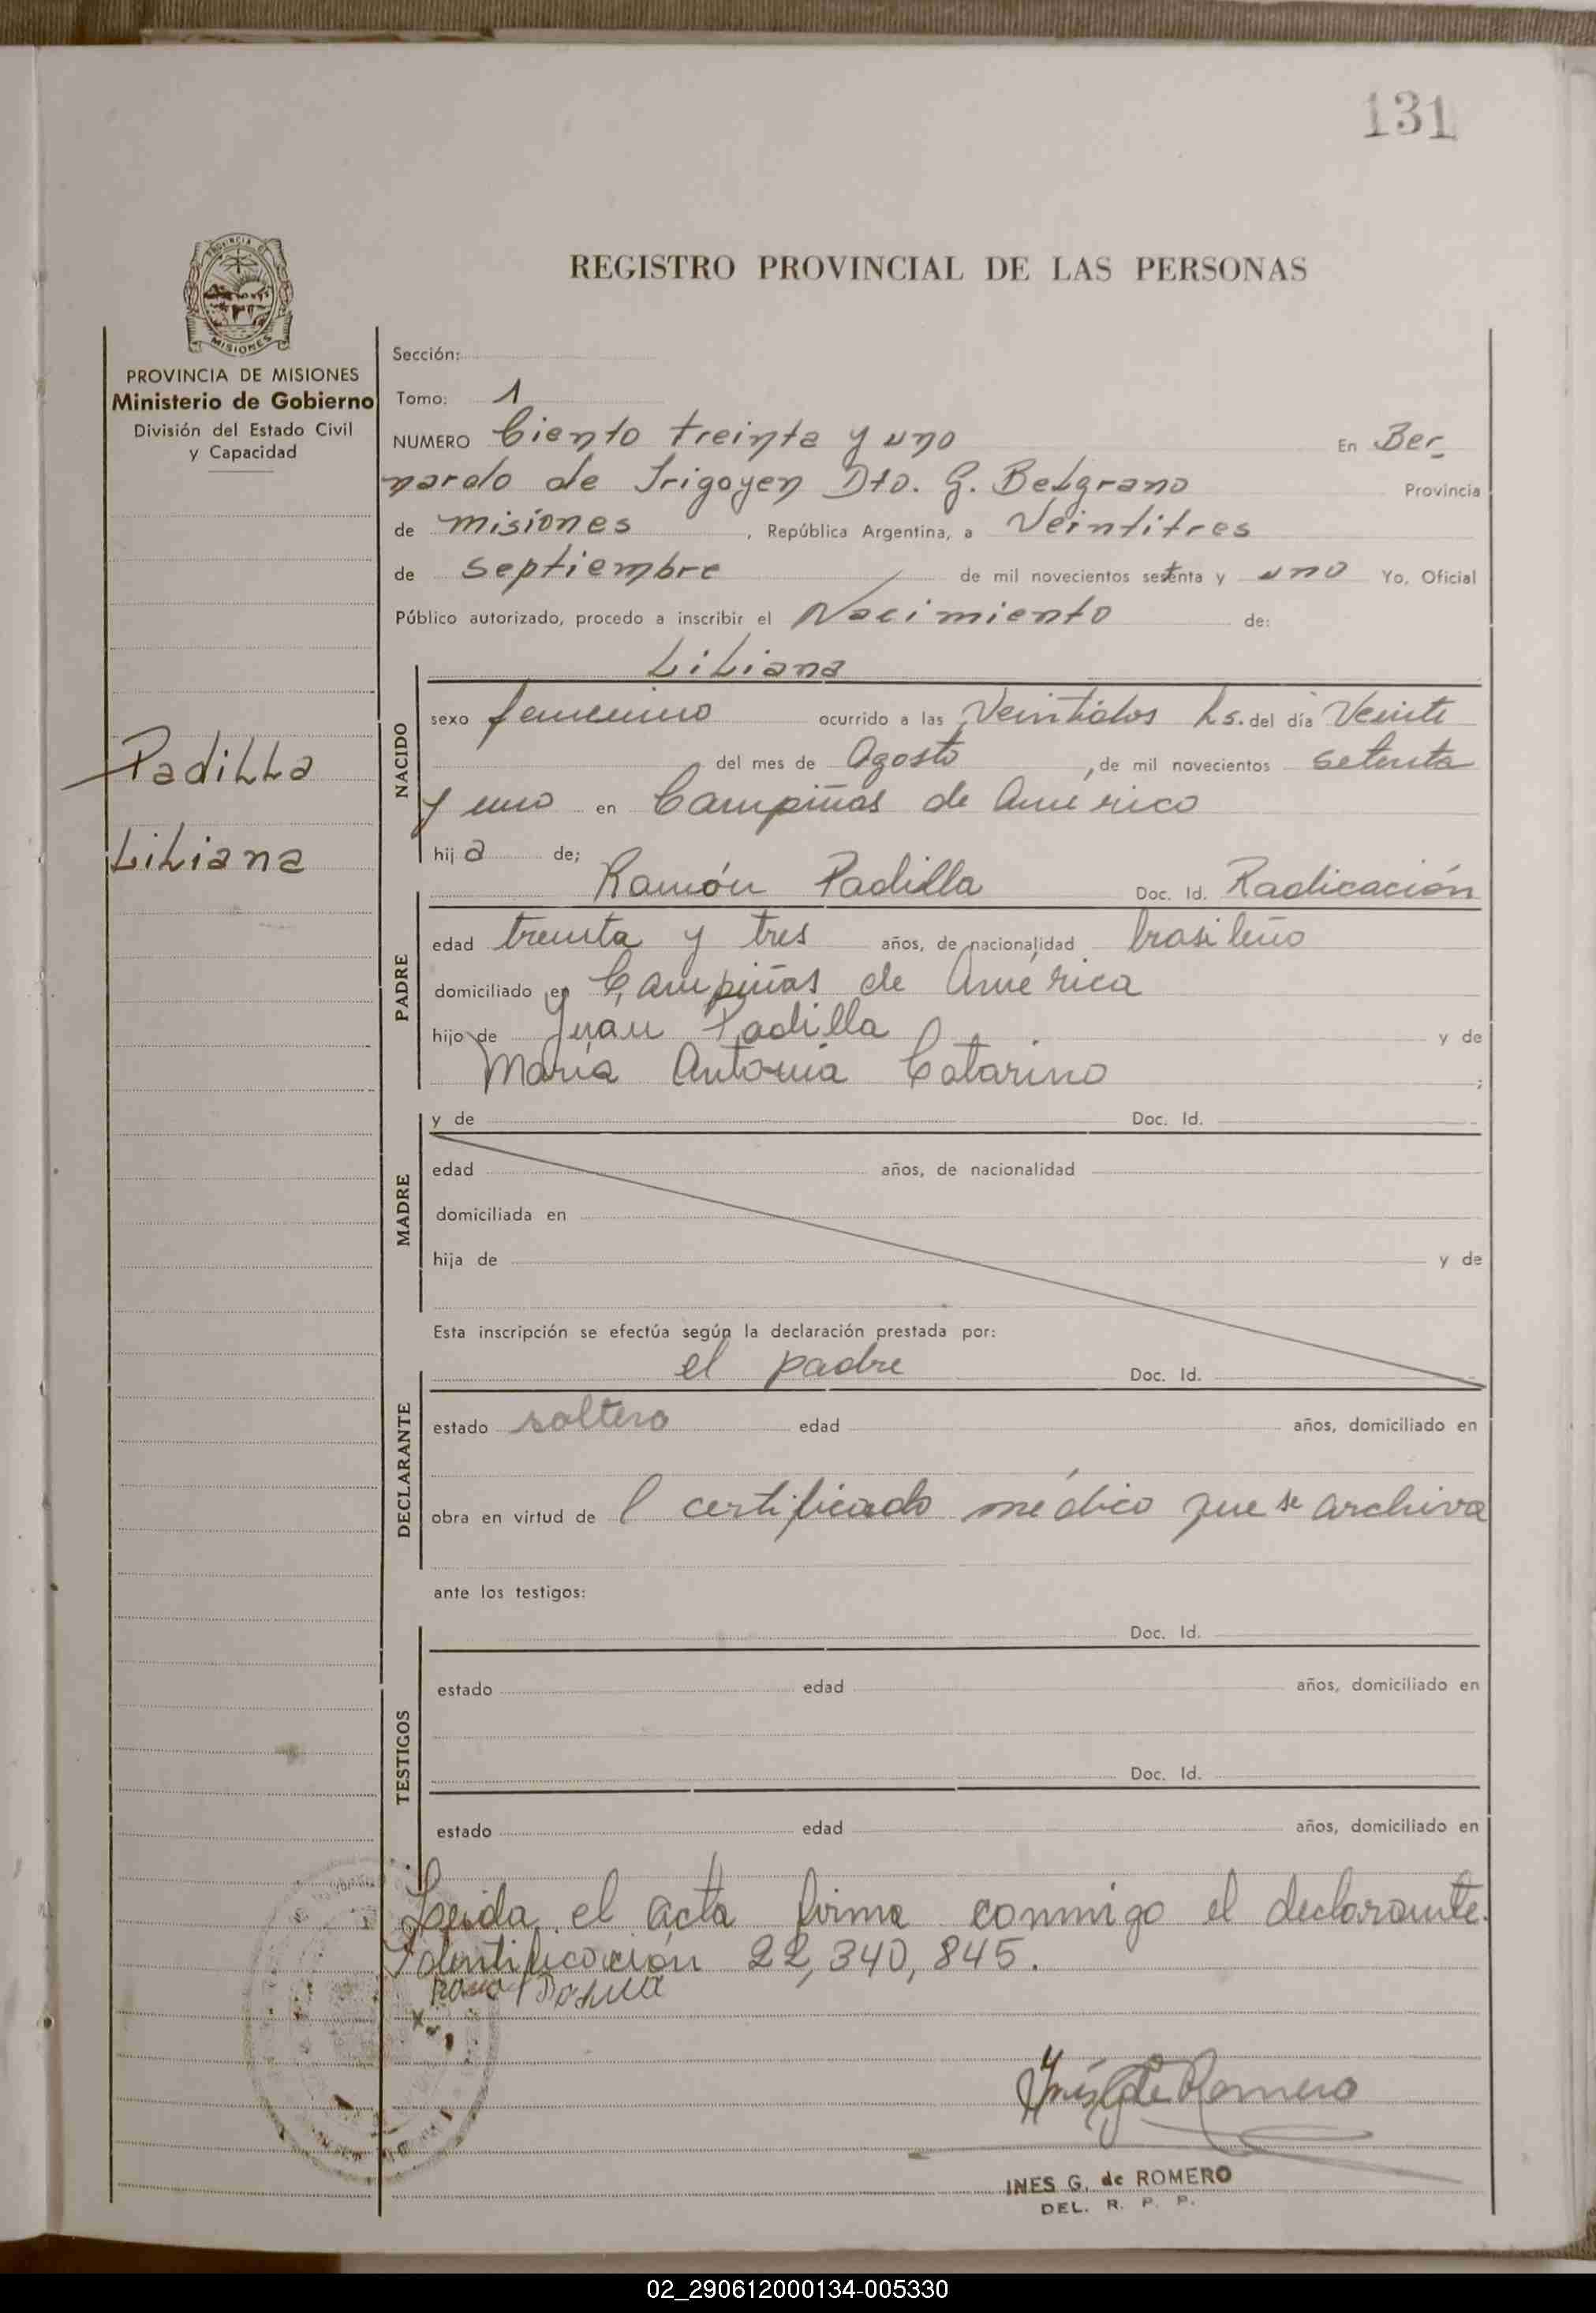 131
REGISTRO PROVINCIAL DE LAS PERSONAS
PROVINCIA DE MISIONES
Ministerio de Gobierno
División del Estado Civil
y Capacidad
Padilla
Liliana
Sección:
Tomo: 1
NUMERO Ciento treinta y uno En Ber-
nardo de Irigoyen Dto. G. Belgrano Provincia
de misiones, República Argentina, a Veintitres
de septiembre de mil novecientos setenta y uno Yo, Oficial
Público autorizado, procedo a inscribir el Nacimiento de:
Liliana
NACIDO
sexo femenino ocurrido a las Veintidos hs. del día Veinte
del mes de Agosto, de mil novecientos setenta
y uno en Campiñas de Américo
hija de;
Ramón Padilla Doc. Id. Radicación
PADRE
edad treinta y tres años, de nacionalidad brasileño
domiciliado en Campiñas de América
hijo de Juan Padilla y de
María Antonia Catarino;
y de Doc. Id.
MADRE
edad años, de nacionalidad
domiciliada en
hija de y de
Esta inscripción se efectúa según la declaración prestada por:
el padre Doc. Id.
DECLARANTE
estado soltero edad años, domiciliado en
obra en virtud de l certificado médico que se archiva
ante los testigos:
Doc. Id.
TESTIGOS
estado edad años, domiciliado en
Doc. Id.
estado edad años, domiciliado en
Leida el acta firma conmigo el declarante.
Identificación 22,340,845.
Inés G de Romero
INES G. de ROMERO
DEL. R. P. P.
02_290612000134-005330